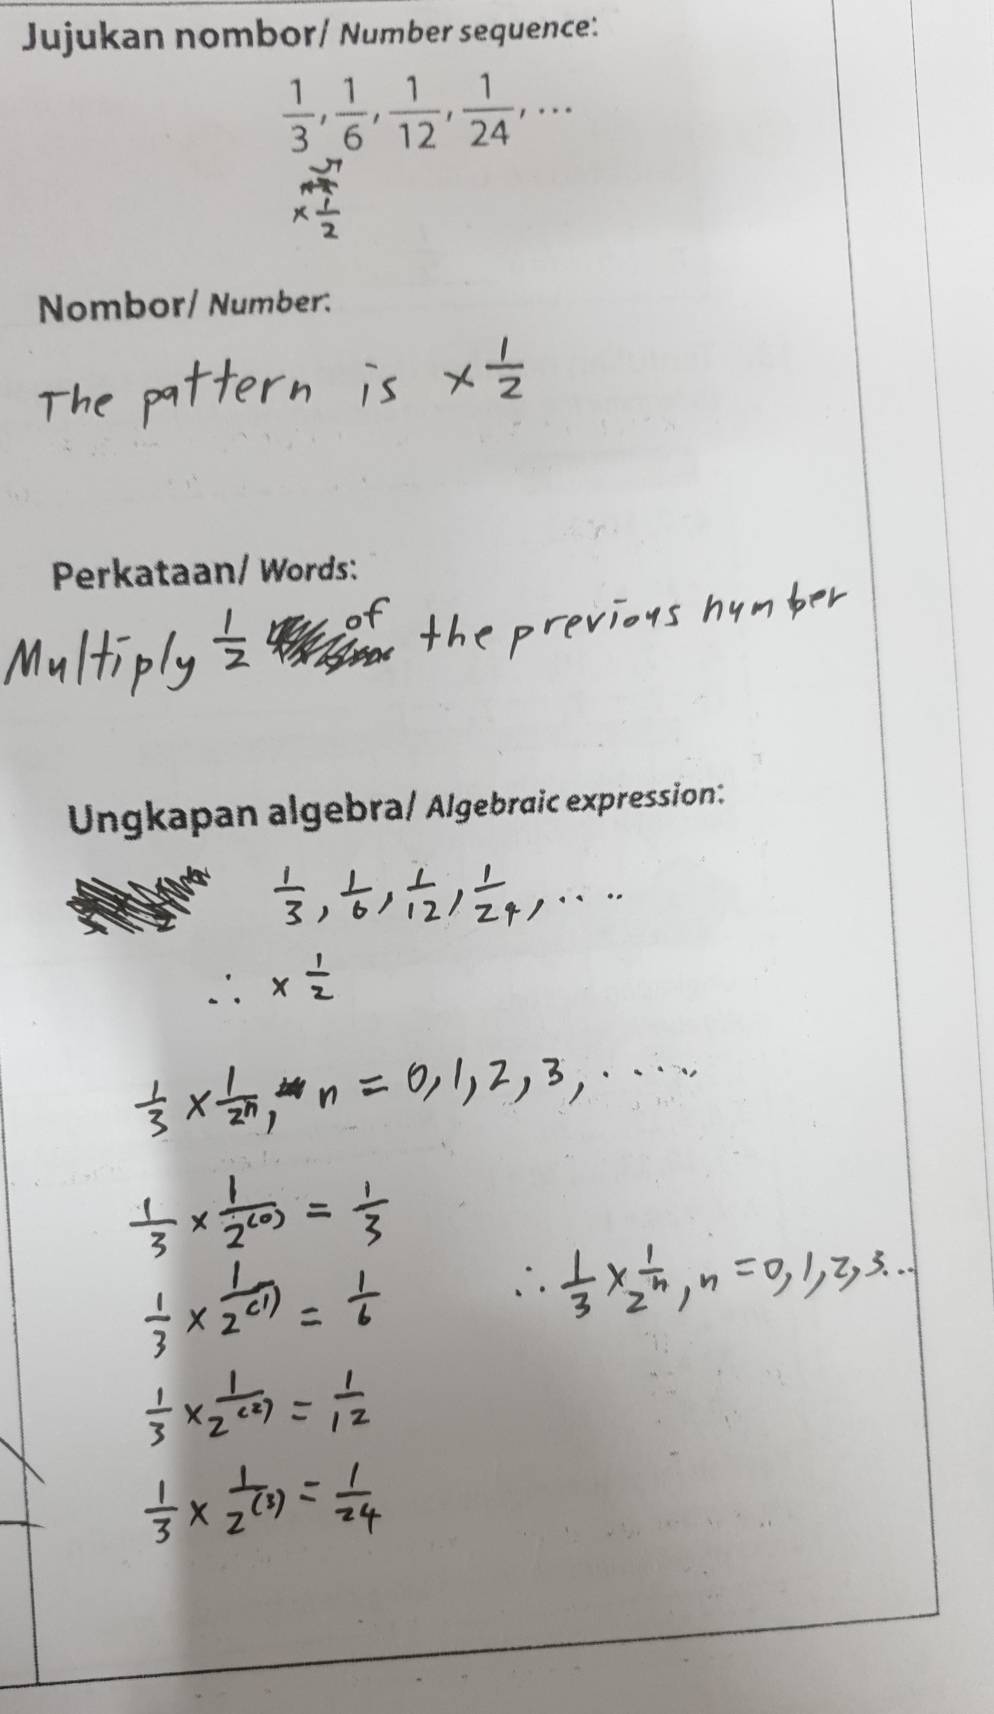 Jujukan nombor/ Number sequence:
1/3, 1/6, 1/12, 1/24, ...
× 1/2
Nombor/ Number:
The pattern is × 1/2
Perkataan/ Words:
Multiply 1/2 of the previous number
Ungkapan algebra/ Algebraic expression:
1/3, 1/6, 1/12, 1/24, .....
∴ × 1/2
1/3 × 1/2ⁿ, n = 0, 1, 2, 3, ......
1/3 × 1/2⁽⁰⁾ = 1/3
1/3 × 1/2⁽¹⁾ = 1/6
∴ 1/3 × 1/2ⁿ, n = 0, 1, 2, 3...
1/3 × 1/2⁽²⁾ = 1/12
1/3 × 1/2⁽³⁾ = 1/24